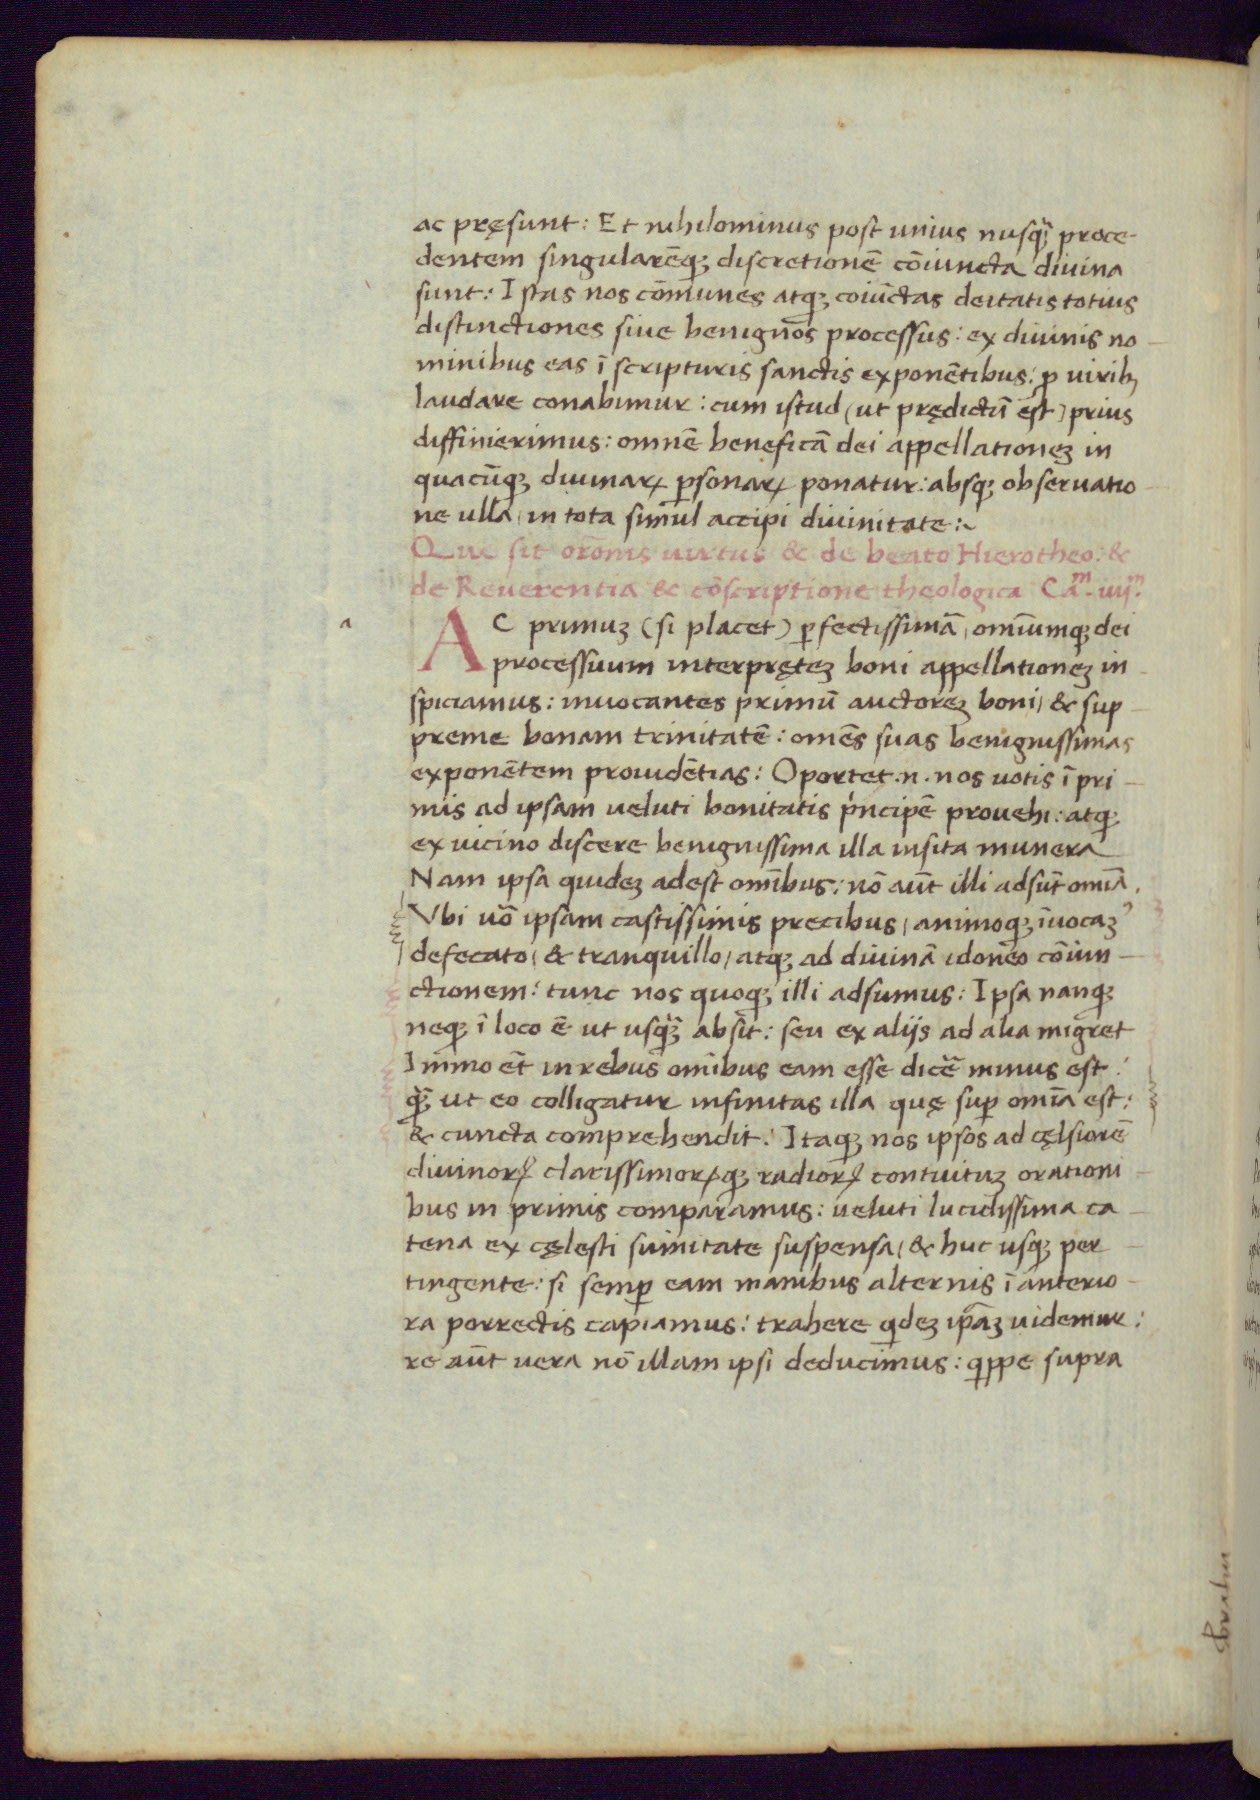 ac pręsunt: Et nihilominus post unius nusq̃ proce-
dentem singularēq; discretionē cōiuncta divina
sunt: Istas nos cōmunes atq; coiūctas deitatis totius
distinctiones sive benignōs processus: ex divinis no-
minibus eas ī scripturis sanctis exponētibus: ꝓ virib;
laudare conabimur: cum istud (ut prędictū est) prius
diffinierimus: omnē beneficā dei appellationeꝫ in
quacūq; divinaꝝ ꝑsonaꝝ ponatur: absq; observatio-
ne ulla, in tota simul accipi divinitate:~
Que sit orōnis virtus & de beato Hierotheo: &
de Reverentia & cōscriptione theologica Ca.ᵐ iiijᵐ.
a
AC primuꝫ (si placet) ꝑfectissimā, omīumq; dei
processuum interpręteꝫ boni appellationeꝫ in-
spiciamus: invocantes primū auctoreꝫ boni, & sup-
preme bonam trinitatē: omēs suas benignissimas
exponētem providētias: Oportet .n. nos votis ī pri-
mis ad ipsam veluti bonitatis pͥncipē provehi: atq;
ex vicino discere benignissima illa insita munera
Nam ipsa quideꝫ adest omībus: nō aūt illi adsūt omīa.
Vbi vō ipsam castissimis precibus, animoq; īvocaꝫ᾽
defecato, & tranquillo, atq; ad divinā idoneo cōiun-
ctionem: tunc nos quoq; illi adsumus: Ipsa nanq;
neq; ī loco ē ut usq̃ absit: seu ex aliis ad alia migret
Immo ēt in rebus omībus eam esse dicē minus est:
q̃ ut eo colligatur infinitas illa quę suꝑ omīa est:
& cuncta comprehendit: Itaq; nos ipsos ad cęlsiorē
divinoꝝ clarissimoꝝq; radioꝝ contuituꝫ orationi-
bus in primis comparamus: veluti lucidissima ca-
tena ex cęlesti sūmitate suspensa, & huc usq; per-
tingente: si semꝑ eam manibus alternis ī anterio-
ra porrectis capiamus: trahere qͥdeꝫ ip̄aꝫ videmur:
re aūt vera nō illam ipsi deducimus: qͥppe supra